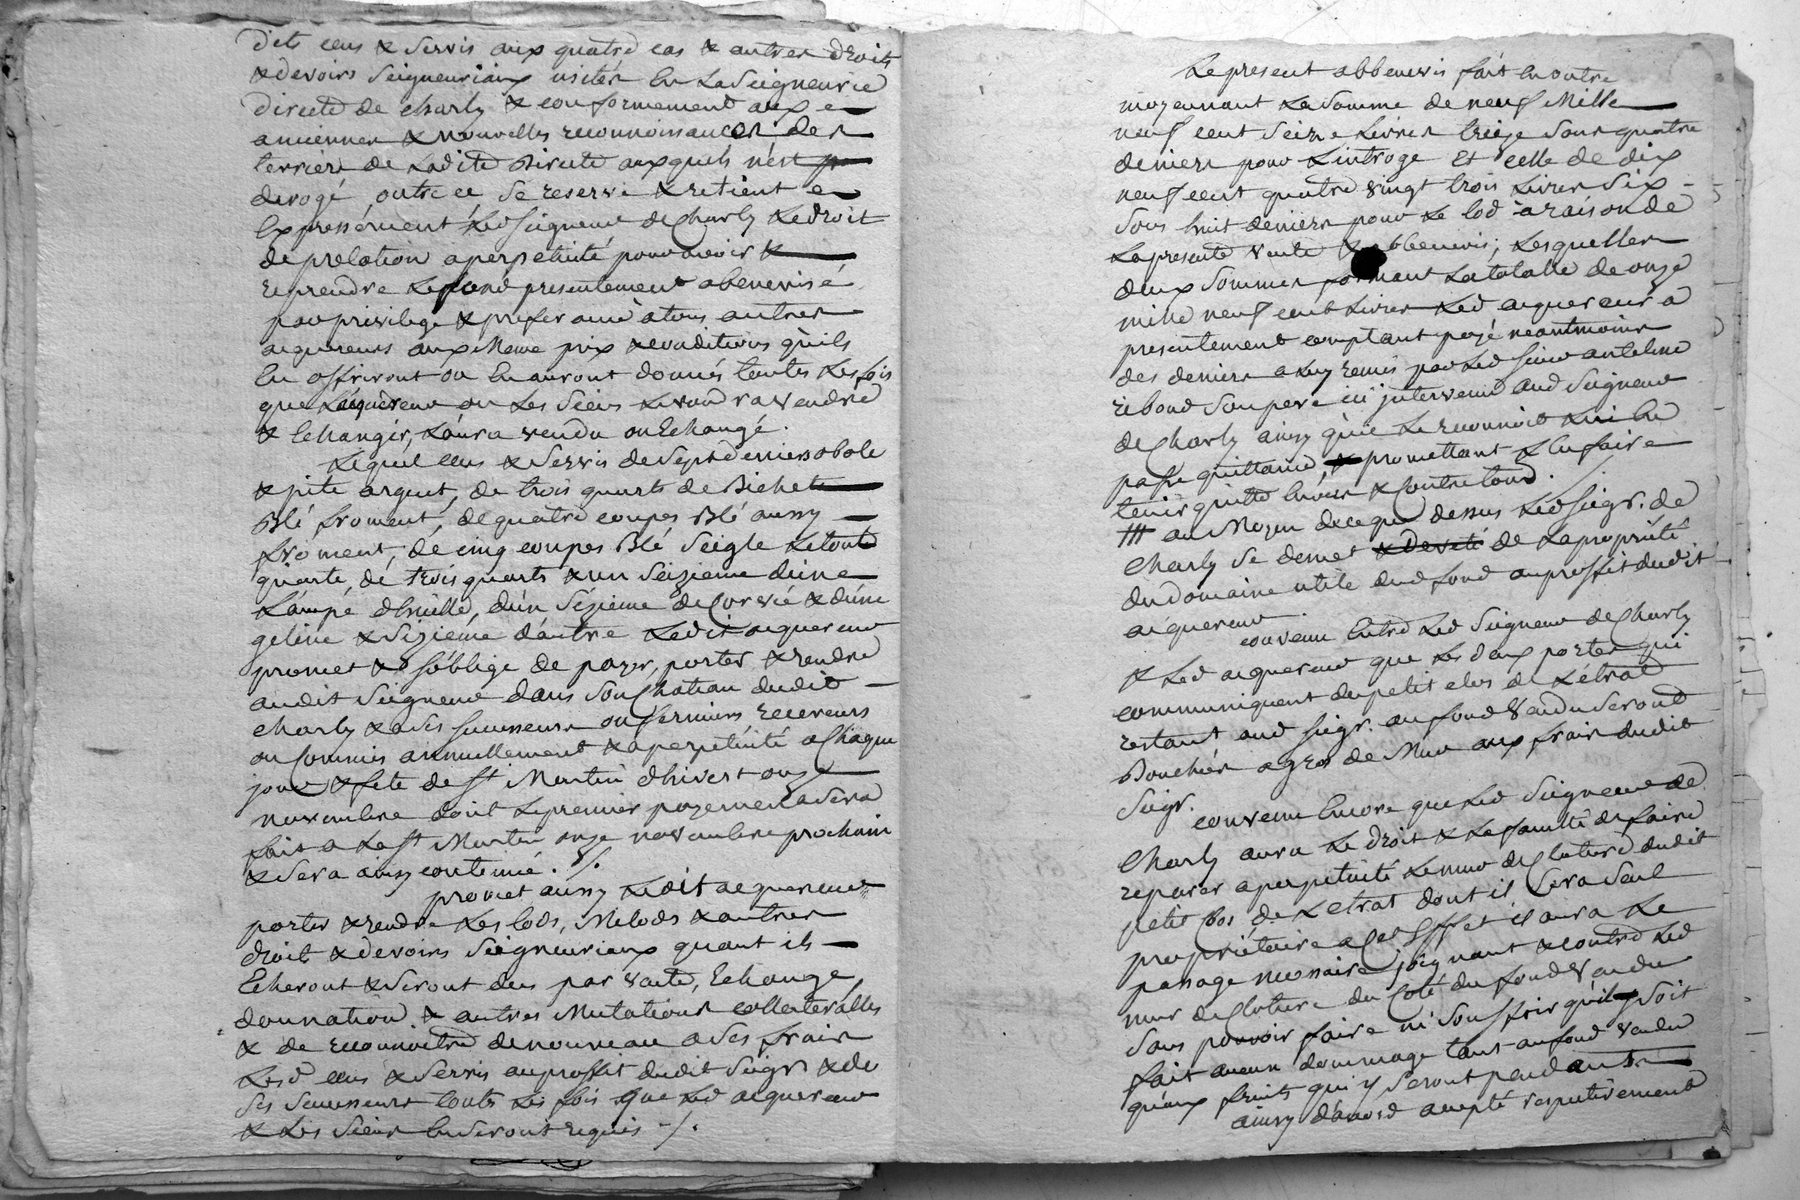 dits cens & servis aux quatre cas & autres droits
& devoirs seigneuriaux usités en la seigneurie
directe de charly & conformement aux
anciennes & nouvelles reconnoissances des
terriers de ladite directe auxquels n'est
derogé, outre ce se reserve & retient
expressément led seigneur de Charly le droit
de prelation a perpetuité pour avoir &
reprendre le fond presentement abenevisé
par privilege & preferance à tous autres
acquereurs aux meme prix & conditions qu'ils
en offriront ou en auront donnés toutes les fois
que l'acquereur ou les siens le voudra vendre
& echanger, l'aura vendu ou echangé.
lequel cens & servis de sept deniers obole
& pite argent, de trois quarts de Bichet
Blé froment, de quatre coupes Blé aussy
froment, de cinq coupes Blé seigle le tout
quarte, de trois quarts & un seizieme d'une
d'huille, d'un sézieme de Corvée & d'une
geline & sizieme d'autre ledit acquereur
promet & s'oblige de payer, porter & rendre
audit seigneur dans son Chateau dudit
charly & a ses successeurs ou fermiers receveurs
ou Commis annuellement & a perpetuité a Chaque
jour & fete de st Martin d'hivert onze
novembre dont le premier payement sera
fait a la st Martin onze novembre prochain
& sera ainsy continué. /.
promet aussy ledit acquereur
porter & rendre les lods, Milods & autres
droits & devoirs seigneuriaux quant ils
Echeront & seront deus par vente, Echange
donnation & autres Mutations collateralles
& de reconnoitre de nouveau a ses frais
lesd cens & servis au proffit dudit seigr & de
ses successeurs toutes les fois que led acquereur
& les siens en seront requis. /.
Le present abbenevis fait en outre
moyennant la somme de neuf Mille
neuf cent seize livres treize sous quatre
deniers pour l'introge Et celle de dix
neuf cent quatre vingt trois livres six
sous huit deniers pour le lod a raison de
la presente vente & abbenevis, lesquelles
deux sommes formant la totalle de onze
mille neuf cent livres led acquereur a
presentement comptant payé neantmoins
des deniers a luy remis par led sieur antelme
ribond son pere icy intervenu aud seigneur
de Charly ainsy qu'il le reconnoit & lui en
passe quittance, & promettant l'en faire
tenir quitte envers & Contre tous.
/// au Moyen de ce que dessus led seigr. de
Charly se demet & deveté de la proprieté
du domaine utile dud fond au proffit dudit
acquereur
convenu Entre led seigneur de Charly
& led acquereur que les deux portes qui
communiquent du petit clos de Létrat
restant aud seigr. au fond vendu seront
Bouchées a gros de Mur aux frais dudit
seigr.
convenu Encore que led seigneur de
Charly aura le droit & la faculté de faire
reparer a perpetuité le mur de Cloture dudit
petit Clos de Letrat dont il sera seul
proprietaire a Cet Effet il aura le
passage necessaire joignant & contre led
mur de Cloture du Coté du fond vendu
sans pouvoir faire ni souffrir qu'il y soit
fait aucun dommage tant au fond vendu
qu'aux fruits qui y seront pendants
ainsy d'accord accepté respectivement